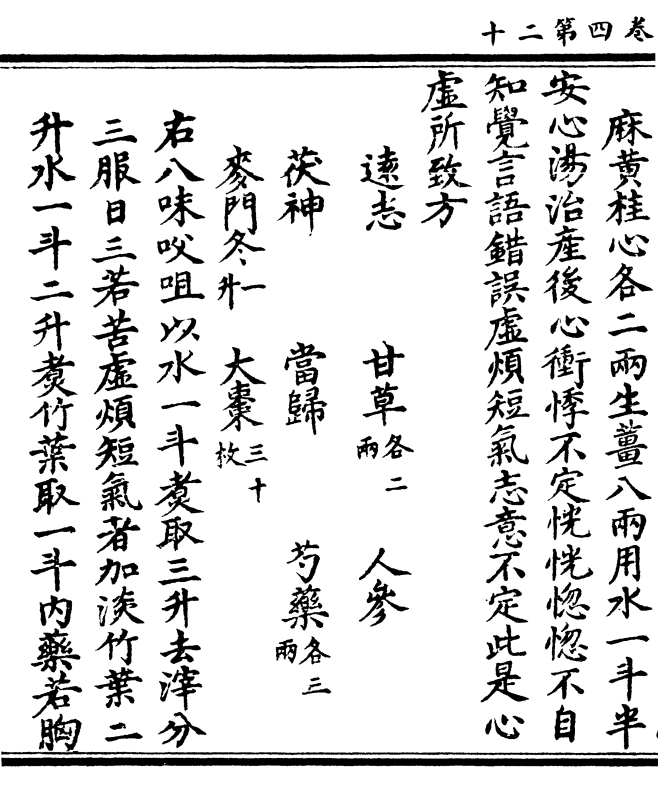 卷四第二十
麻黄桂心各二兩生薑八兩用水一斗半
安心湯治產後心衝悸不定恍恍惚惚不自
知覺言語錯誤虛煩短氣志意不定此是心
虛所致方
遠志 甘草各二兩 人參
茯神 當歸 芍藥各三兩
麥門冬一升 大棗三十枚
右八味㕮咀以水一斗煑取三升去滓分
三服日三若苦虛煩短氣者加淡竹葉二
升水一斗二升煑竹葉取一斗內藥若胸